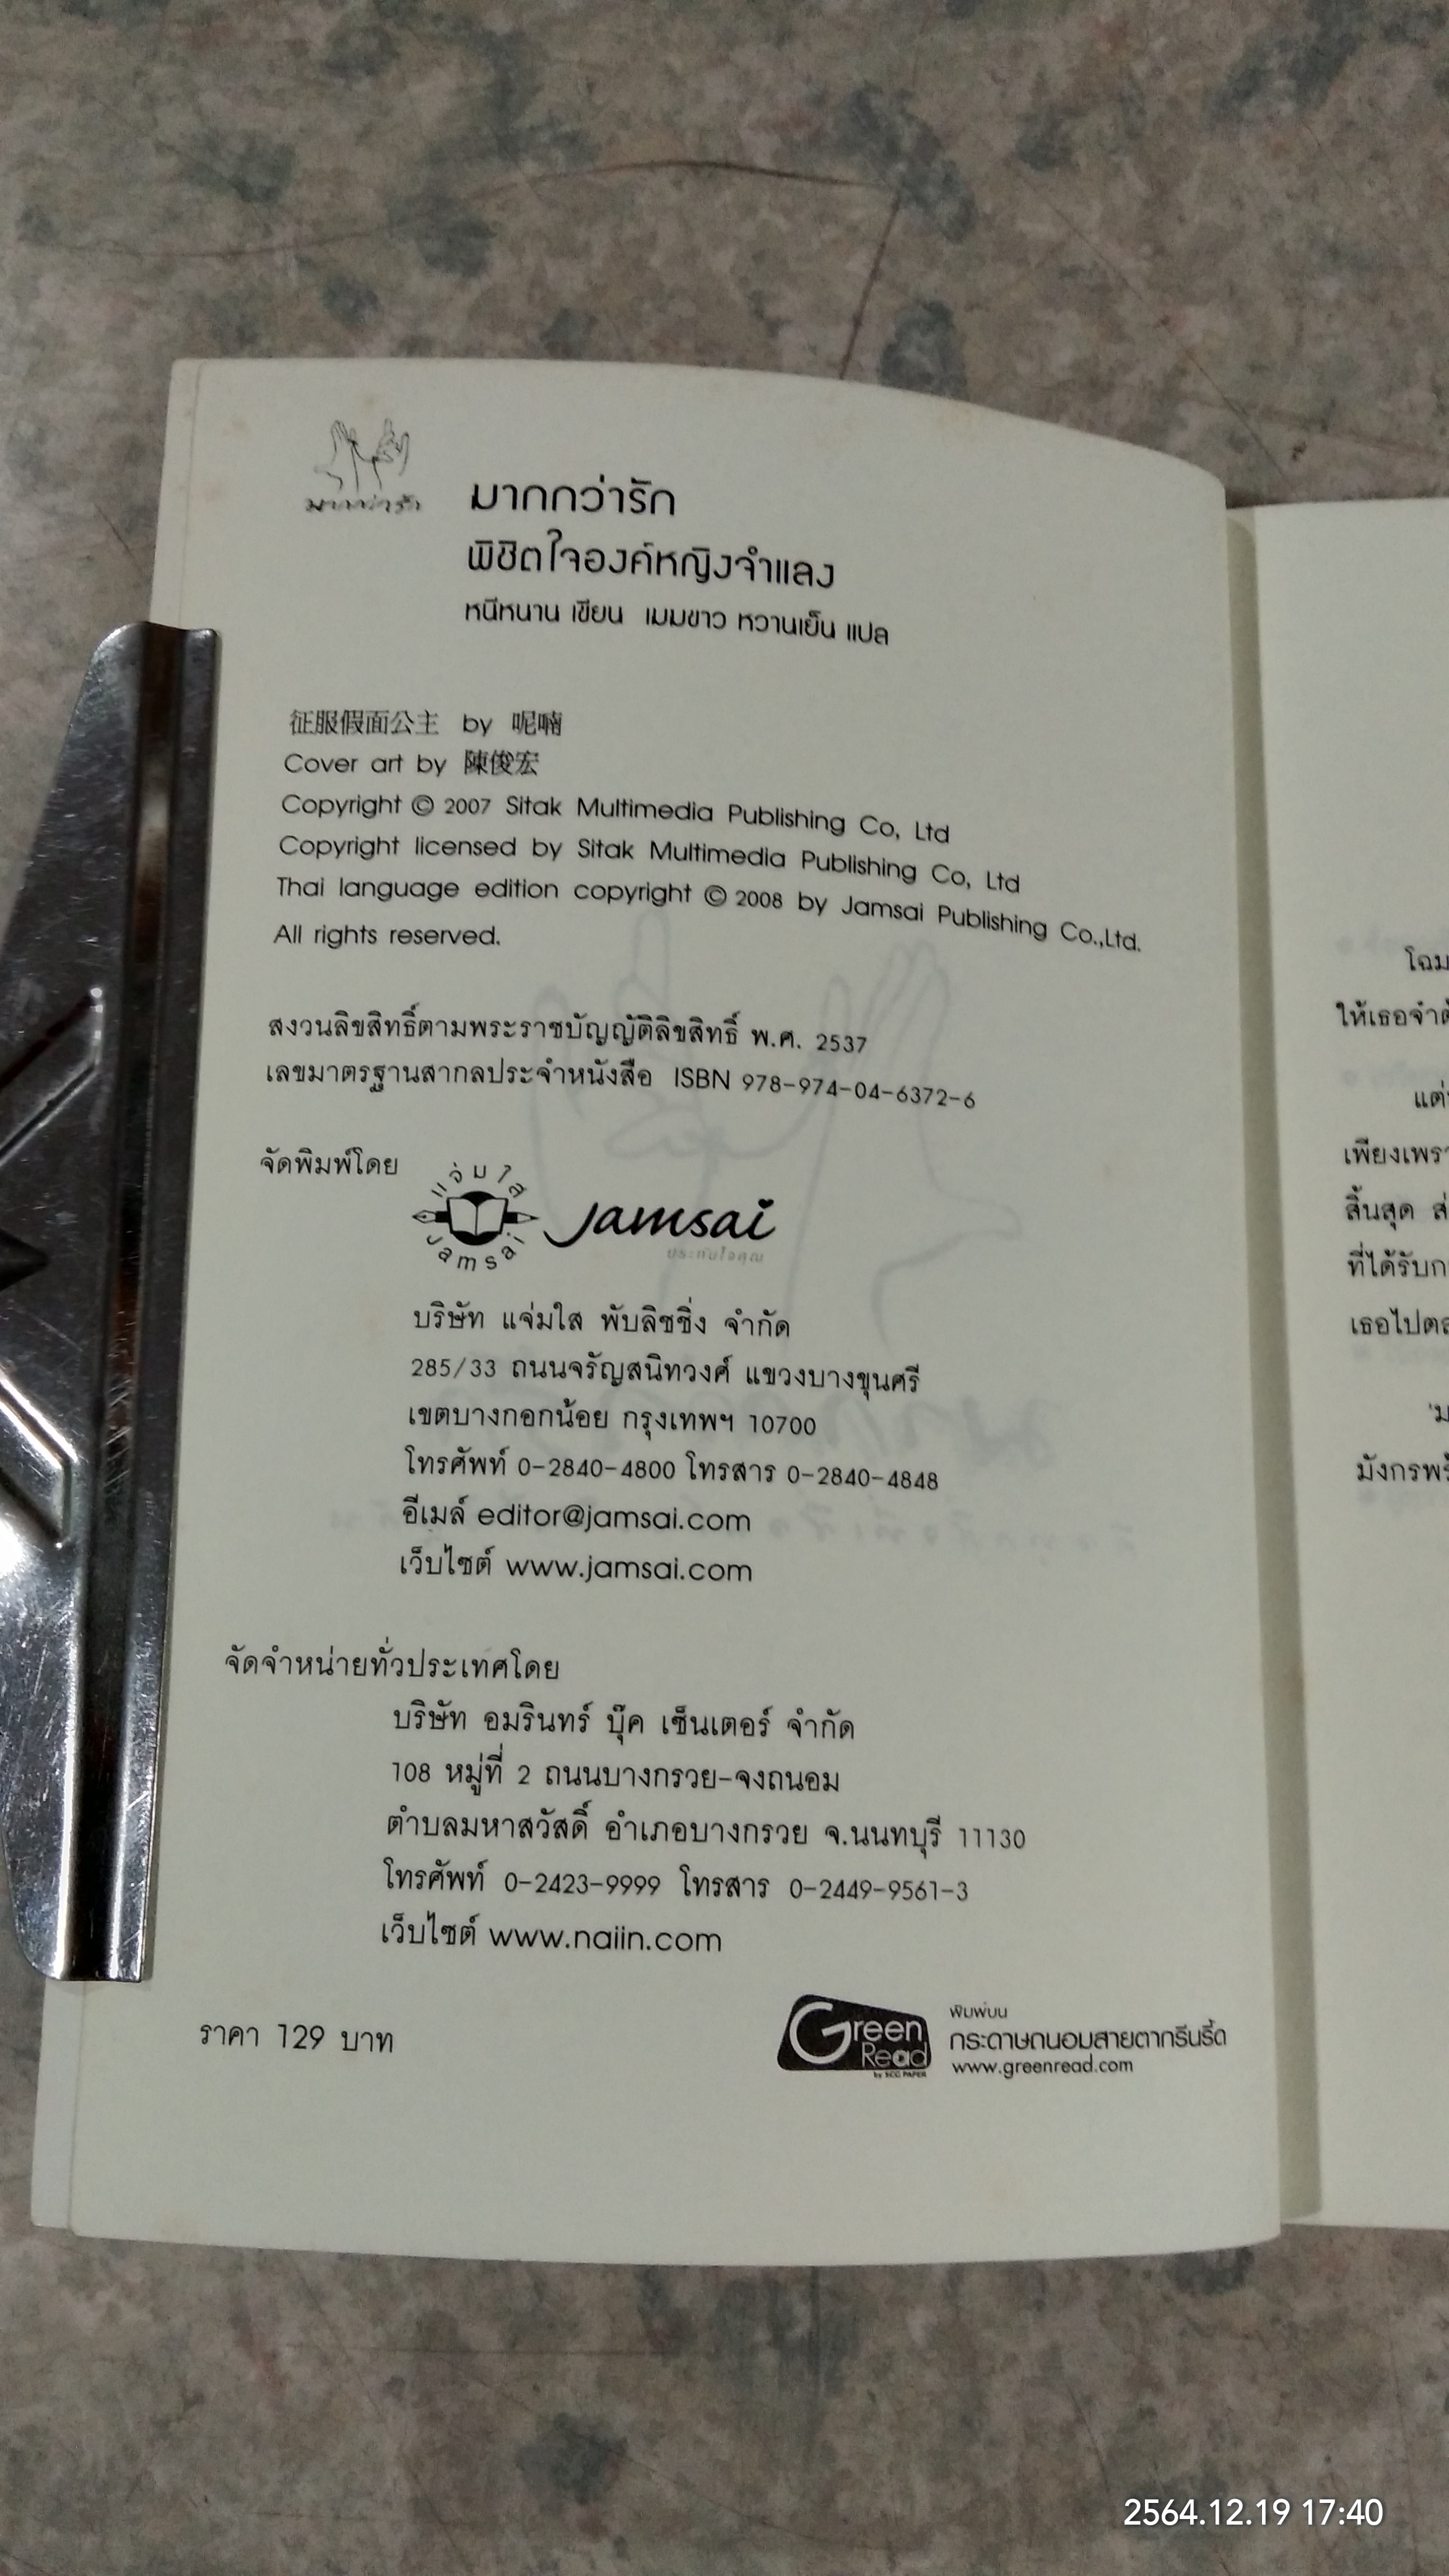 มากกว่ารัก
มากกว่ารัก
พิชิตใจองค์หญิงจำแลง
หนีหนาน เขียน เมมขาว หวานเย็น แปล
征服假面公主 by 呢喃
Cover art by 陳俊宏
Copyright © 2007 Sitak Multimedia Publishing Co, Ltd
Copyright licensed by Sitak Multimedia Publishing Co, Ltd
Thai language edition copyright © 2008 by Jamsai Publishing Co.,Ltd.
All rights reserved.
สงวนลิขสิทธิ์ตามพระราชบัญญัติลิขสิทธิ์ พ.ศ. 2537
เลขมาตรฐานสากลประจำหนังสือ ISBN 978-974-04-6372-6
จัดพิมพ์โดย
แจ่มใส
Jamsai
Jamsai
ประทับใจคุณ
บริษัท แจ่มใส พับลิชชิ่ง จำกัด
285/33 ถนนจรัญสนิทวงศ์ แขวงบางขุนศรี
เขตบางกอกน้อย กรุงเทพฯ 10700
โทรศัพท์ 0-2840-4800 โทรสาร 0-2840-4848
อีเมล์ editor@jamsai.com
เว็บไซต์ www.jamsai.com
จัดจำหน่ายทั่วประเทศโดย
บริษัท อมรินทร์ บุ๊ค เซ็นเตอร์ จำกัด
108 หมู่ที่ 2 ถนนบางกรวย-จงถนอม
ตำบลมหาสวัสดิ์ อำเภอบางกรวย จ.นนทบุรี 11130
โทรศัพท์ 0-2423-9999 โทรสาร 0-2449-9561-3
เว็บไซต์ www.naiin.com
ราคา 129 บาท
Green
Read
by SCG PAPER
พิมพ์บน
กระดาษถนอมสายตากรีนรี้ด
www.greenread.com
โฉม
ให้เธอจำต้
แต่
เพียงเพรา
สิ้นสุด ส่
ที่ได้รับก
เธอไปตล
'ม
มังกรพร้
2564.12.19 17:40